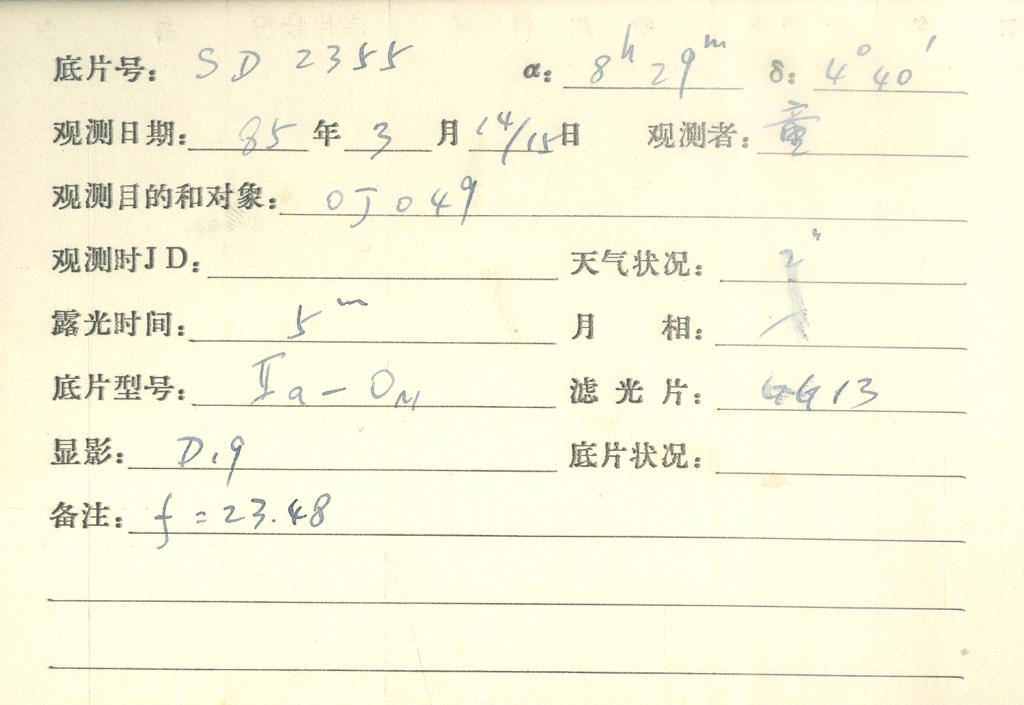 底片号: SD 2355 α: 8h 29m δ: 4° 40′
观测日期: 85 年 3 月 14/15 日 观测者: 童
观测目的和对象: OJ 049
观测时JD: 天气状况: 2"
露光时间: 5m 月 相:
底片型号: IIa-OM 滤 光 片: GG13
显影: D.19 底片状况:
备注: f = 23.48